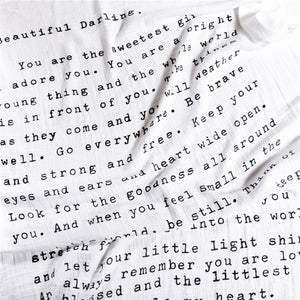 Beautiful Darling,
You are the sweetest gi
I adore you. You are a bright
young thing and the whole world
is in front of you.
as they come and go. will weather
well. Go everywhere. Be brave
and strong and free. Keep your
eyes and ears and heart wide open.
Look for the goodness all around
you. And when you feel small in the
world, be still. Think of
deep
stretch
and let your little light shin
always remember you are lov
blessed and the littlest
me my heart.